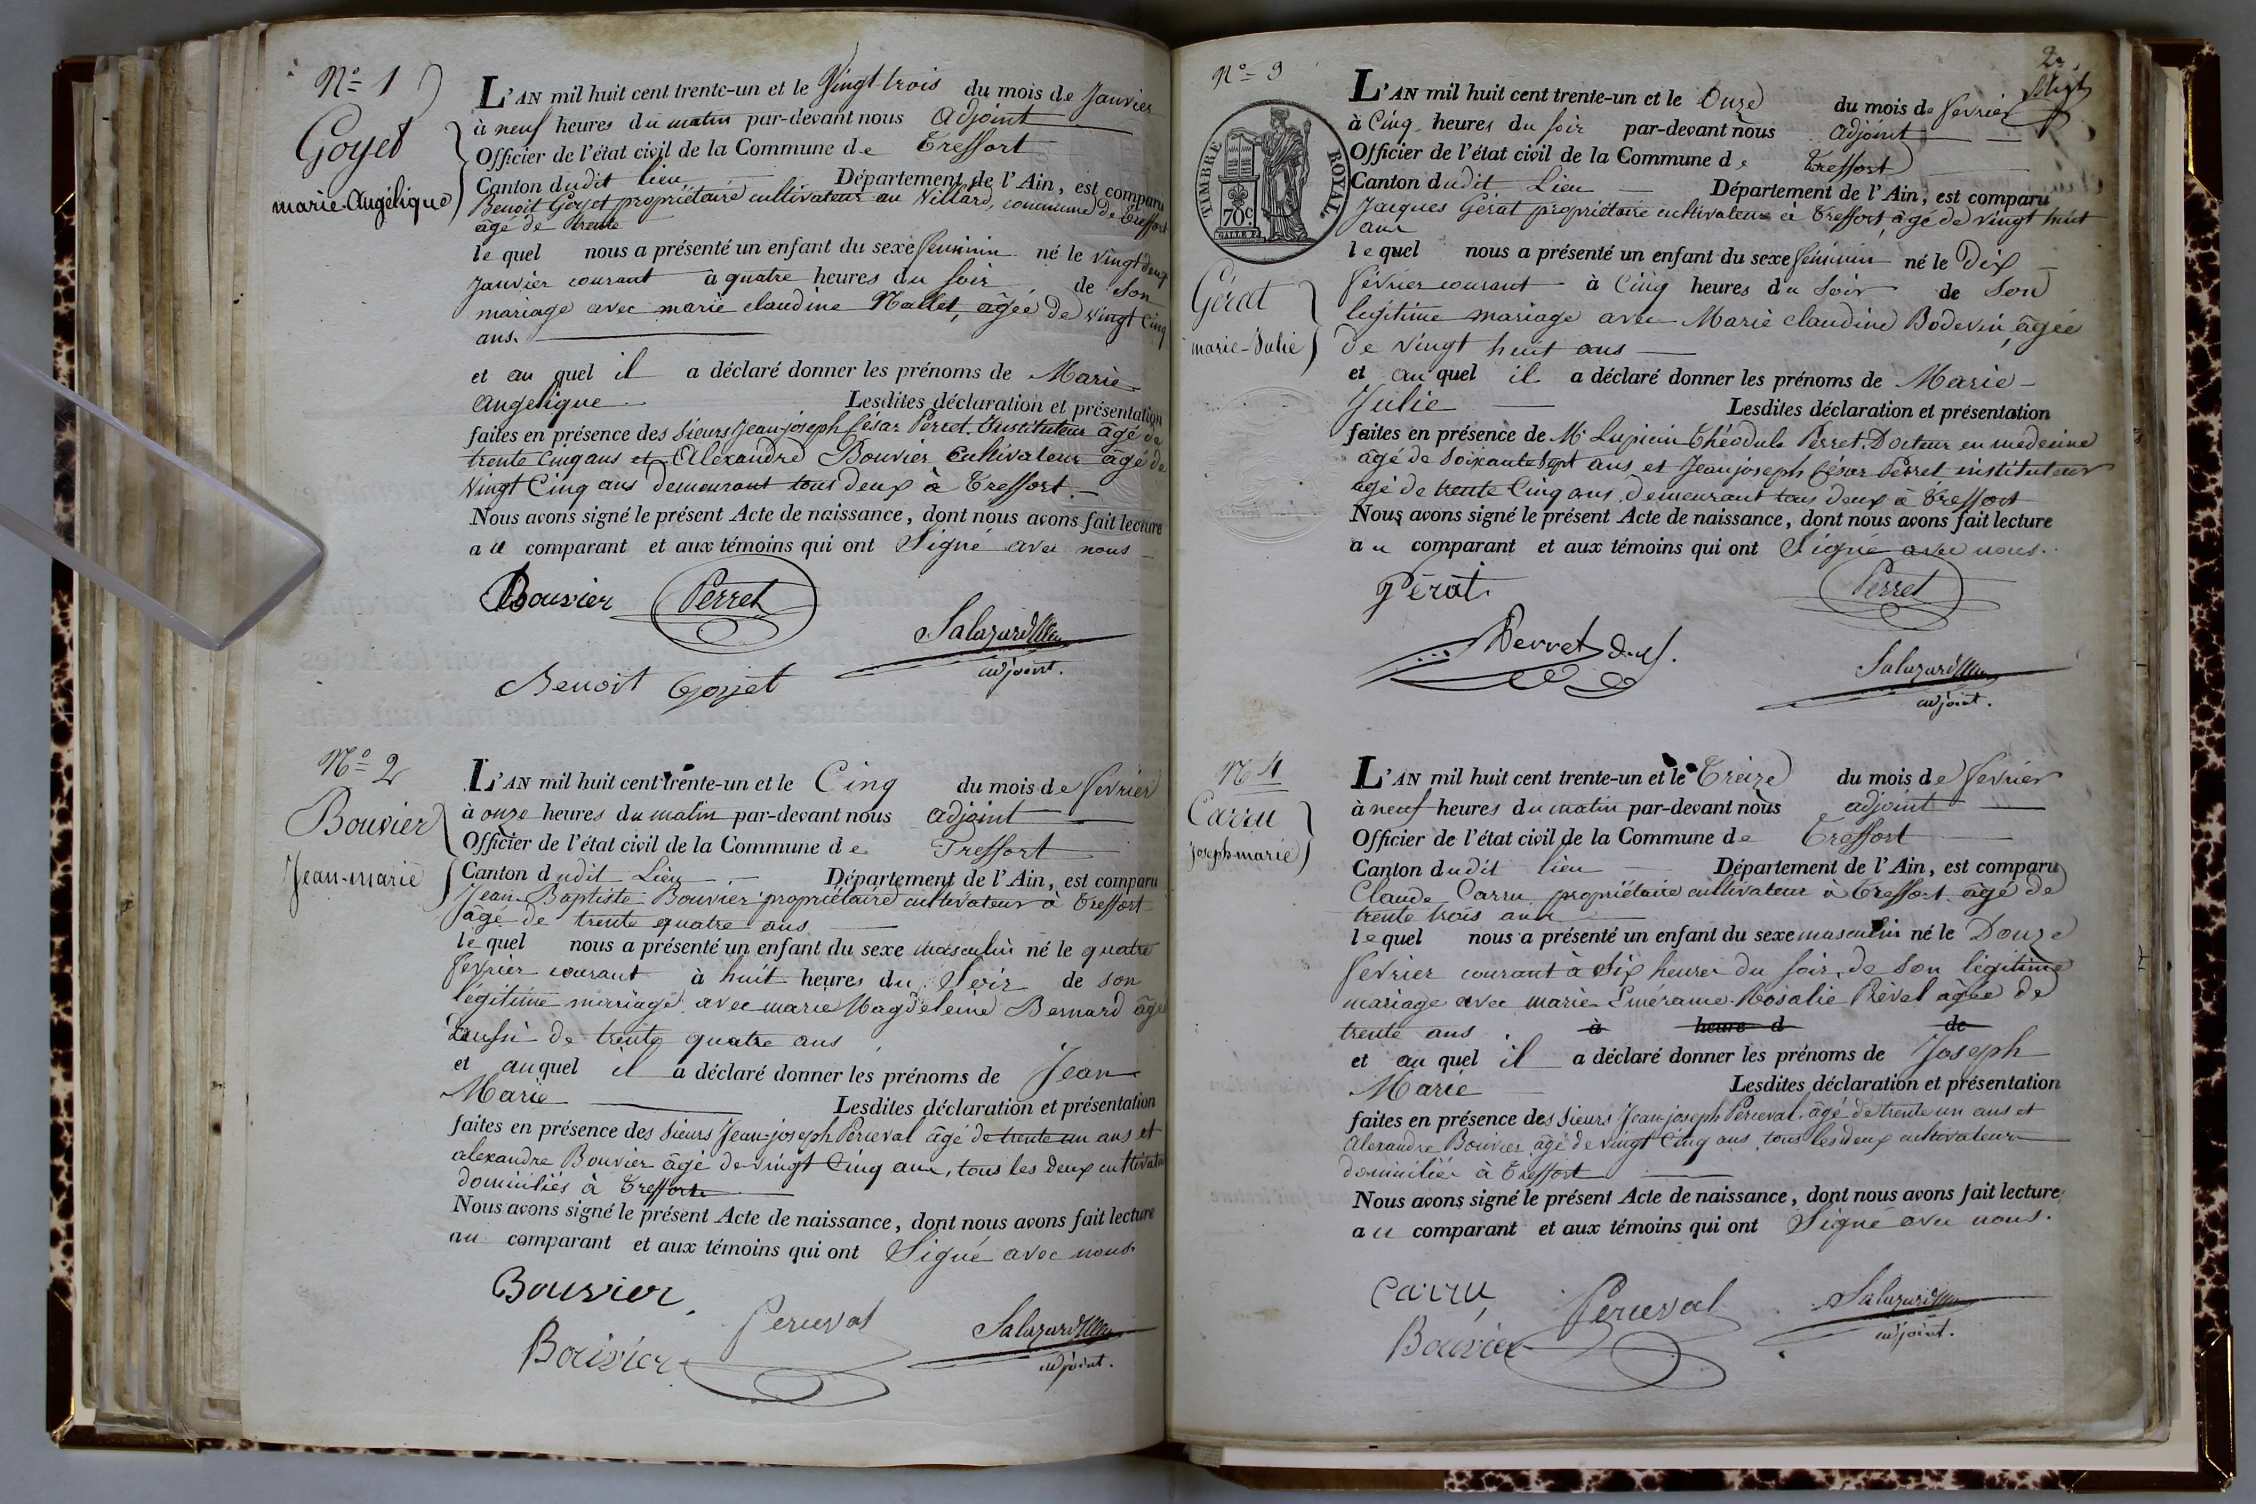 N° 1
Goyet
marie-Angélique
L'AN mil huit cent trente-un et le Vingt trois du mois de Janvier
à neuf heures du matin par-devant nous Adjoint
Officier de l'état civil de la Commune de Treffort
Canton dudit lieu Département de l'Ain, est comparu
Benoit Goyet propriétaire cultivateur au Villard, commune de Treffort
âgé de trente
lequel nous a présenté un enfant du sexe feminin né le vingt deux
Janvier courant à quatre heures du soir de son
mariage avec marie claudine Nallet, âgée de vingt cinq
ans.
et au quel il a déclaré donner les prénoms de Marie
Angelique Lesdites déclaration et présentation
faites en présence des sieurs Jean joseph César Perret Instituteur âgé de
trente cinq ans et Alexandre Bouvier Cultivateur âgé de
Vingt Cinq ans demeurant tous deux à Treffort.
Nous avons signé le présent Acte de naissance, dont nous avons fait lecture
au comparant et aux témoins qui ont Signé avec nous
Bouvier Perret
Salazard
adjoint.
Benoit Goyet
N° 2
Bouvier
Jean-marie
L'AN mil huit cent trente-un et le Cinq du mois de fevrier
à onze heures du matin par-devant nous adjoint
Officier de l'état civil de la Commune de Treffort
Canton dudit Lieu Département de l'Ain, est comparu
Jean-Baptiste Bouvier propriétaire cultivateur à Treffort
âgé de trente quatre ans
lequel nous a présenté un enfant du sexe masculin né le quatre
fevrier courant à huit heures du Soir de son
légitime mariage avec marie Magdeleine Bernard âgé
aussi de trente quatre ans
et auquel il a déclaré donner les prénoms de Jean
Marie Lesdites déclaration et présentation
faites en présence des sieurs Jean-joseph Perceval âgé de trente un ans et
alexandre Bouvier âgé de vingt Cinq ans, tous les deux cultivateurs
domiciliés à Treffort
Nous avons signé le présent Acte de naissance, dont nous avons fait lecture
au comparant et aux témoins qui ont Signé avec nous.
Bouvier
Perceval
Salazard
Bouvier
adjoint.
2
N° 3
TIMBRE ROYAL
70c
Gérat
marie-Julie
L'AN mil huit cent trente-un et le Onze du mois de fevrier
à Cinq heures du soir par-devant nous adjoint
Officier de l'état civil de la Commune de Treffort
Canton dudit Lieu Département de l'Ain, est comparu
Jacques Gérat propriétaire cultivateur à Treffort, âgé de vingt huit
ans
lequel nous a présenté un enfant du sexe féminin né le Dix
février courant à Cinq heures du Soir de Son
legitime mariage avec Marie claudine Bodevin, âgée
de vingt huit ans
et au quel il a déclaré donner les prénoms de Marie
Julie Lesdites déclaration et présentation
faites en présence de Mr Lupicin Théodule Perret Docteur en médecine
âgé de Soixante Sept ans et Jean joseph César Perret instituteur
agé de trente Cinq ans demeurant tous deux à Treffort
Nous avons signé le présent Acte de naissance, dont nous avons fait lecture
au comparant et aux témoins qui ont Signé avec nous.
Gérat Perret
Perret
Salazard
adjoint.
N° 4
Carru
joseph-marie
L'AN mil huit cent trente-un et le Treize du mois de fevrier
à neuf heures du matin par-devant nous adjoint
Officier de l'état civil de la Commune de Treffort
Canton dudit lieu Département de l'Ain, est comparu
Claude Carru propriétaire cultivateur à Treffort âgé de
trente trois ans
lequel nous a présenté un enfant du sexe masculin né le Douze
fevrier courant à Six heures du soir, de Son légitime
mariage avec marie Emérame Rosalie Prévet agée de
trente ans à heure d de
et au quel il a déclaré donner les prénoms de Joseph
Marie Lesdites déclaration et présentation
faites en présence des sieurs Jean joseph Perceval, âgé de trente un ans et
Alexandre Bouvier âgé de vingt Cinq ans, tous les deux cultivateurs
domiciliés à Treffort
Nous avons signé le présent Acte de naissance, dont nous avons fait lecture
au comparant et aux témoins qui ont Signé avec nous.
Carru Perceval
Salazard
Bouvier
adjoint.